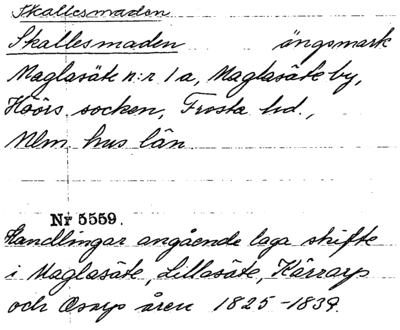 Skallesmaden
Skallesmaden ängsmark
Maglasäte n:r 1a, Maglasäte by,
Höörs socken, Frosta hd.,
Mlm hus län
Nr 5559.
Handlingar angående laga skifte
i Maglasäte, Lillasäte, Kärrarp
och Osarp åren 1825-1839.